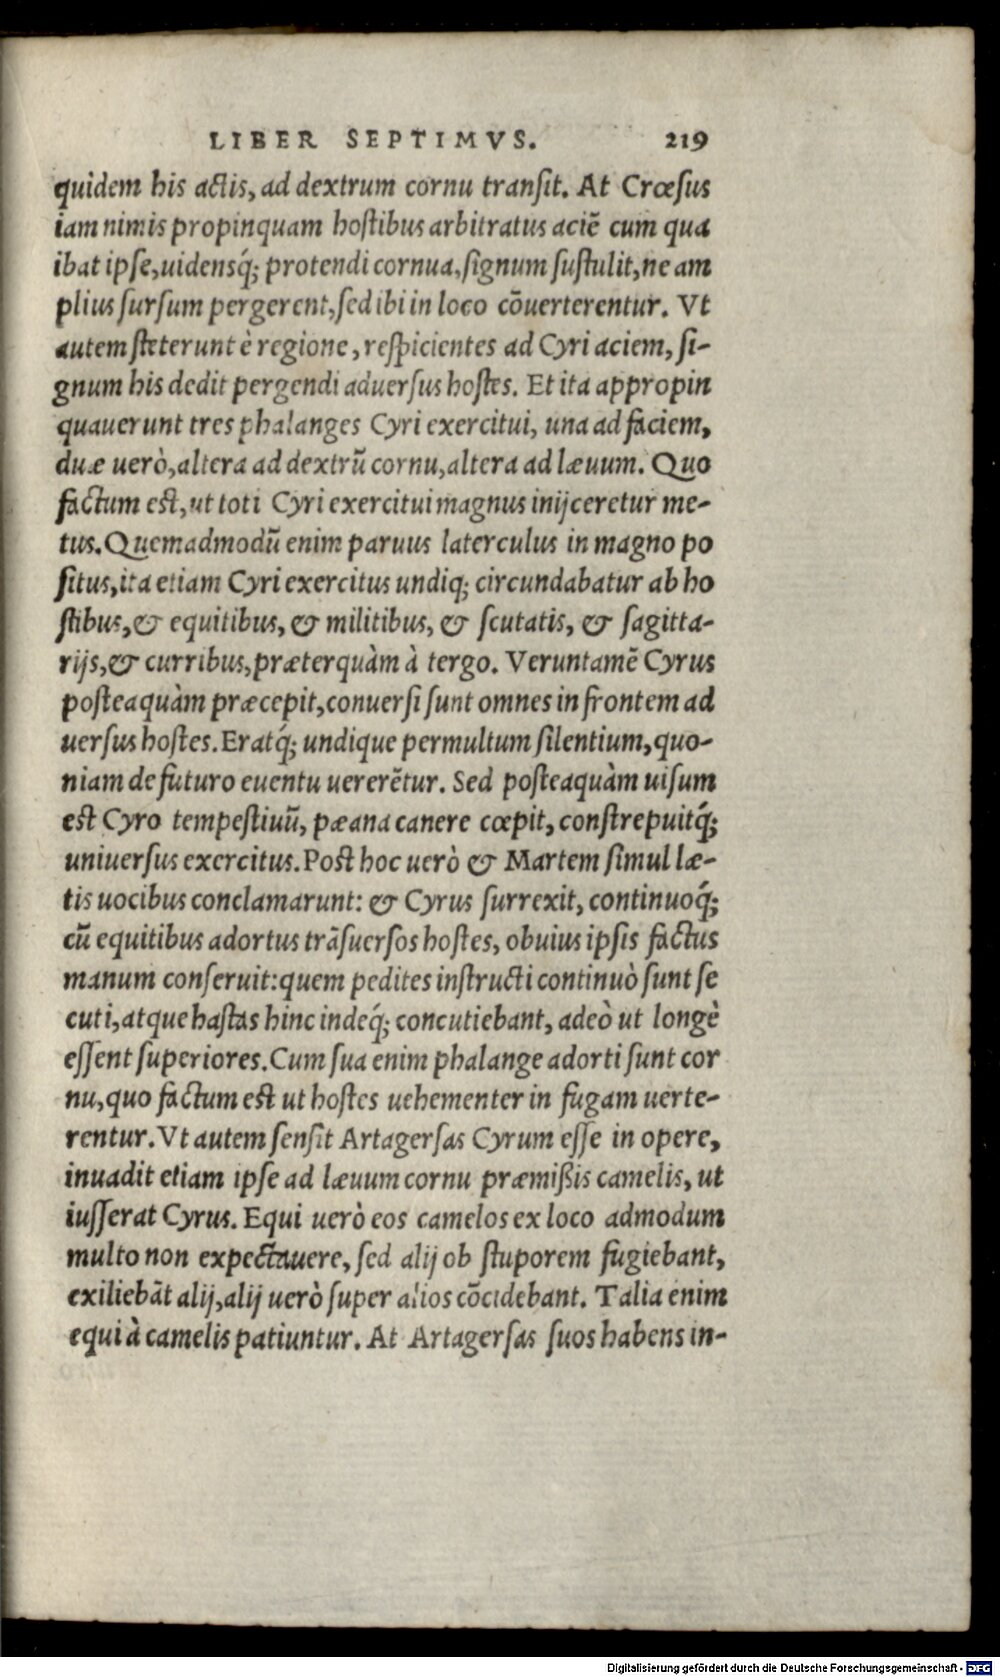 LIBER SEPTIMVS. 219
quidem his actis, ad dextrum cornu transit. At Crœsus
iam nimis propinquam hostibus arbitratus aciẽ cum qua
ibat ipse, uidensq́; protendi cornua, signum sustulit, ne am
plius sursum pergerent, sed ibi in loco cõuerterentur. Vt
autem steterunt è regione, respicientes ad Cyri aciem, si-
gnum his dedit pergendi aduersus hostes. Et ita appropin
quauerunt tres phalanges Cyri exercitui, una ad faciem,
duæ uerò, altera ad dextrũ cornu, altera ad læuum. Quo
factum est, ut toti Cyri exercitui magnus inijceretur me-
tus. Quemadmodũ enim paruus laterculus in magno po
situs, ita etiam Cyri exercitus undiq; circundabatur ab ho
stibus, & equitibus, & militibus, & scutatis, & sagitta-
rijs, & curribus, præterquàm à tergo. Veruntamẽ Cyrus
posteaquàm præcepit, conuersi sunt omnes in frontem ad
uersus hostes. Eratq́; undique permultum silentium, quo-
niam de futuro euentu uererẽtur. Sed posteaquàm uisum
est Cyro tempestiuũ, pæana canere cœpit, constrepuitq́;
uniuersus exercitus. Post hoc uerò & Martem simul læ-
tis uocibus conclamarunt: & Cyrus surrexit, continuoq́;
cũ equitibus adortus trãsuersos hostes, obuius ipsis factus
manum conseruit: quem pedites instructi continuò sunt se
cuti, atque hastas hinc indeq́; concutiebant, adeò ut longè
essent superiores. Cum sua enim phalange adorti sunt cor
nu, quo factum est ut hostes uehementer in fugam uerte-
rentur. Vt autem sensit Artagersas Cyrum esse in opere,
inuadit etiam ipse ad læuum cornu præmißis camelis, ut
iusserat Cyrus. Equi uerò eos camelos ex loco admodum
multo non expectauere, sed alij ob stuporem fugiebant,
exiliebãt alij, alij uerò super alios cõcidebant. Talia enim
equi à camelis patiuntur. At Artagersas suos habens in-
Digitalisierung gefördert durch die Deutsche Forschungsgemeinschaft - DFG